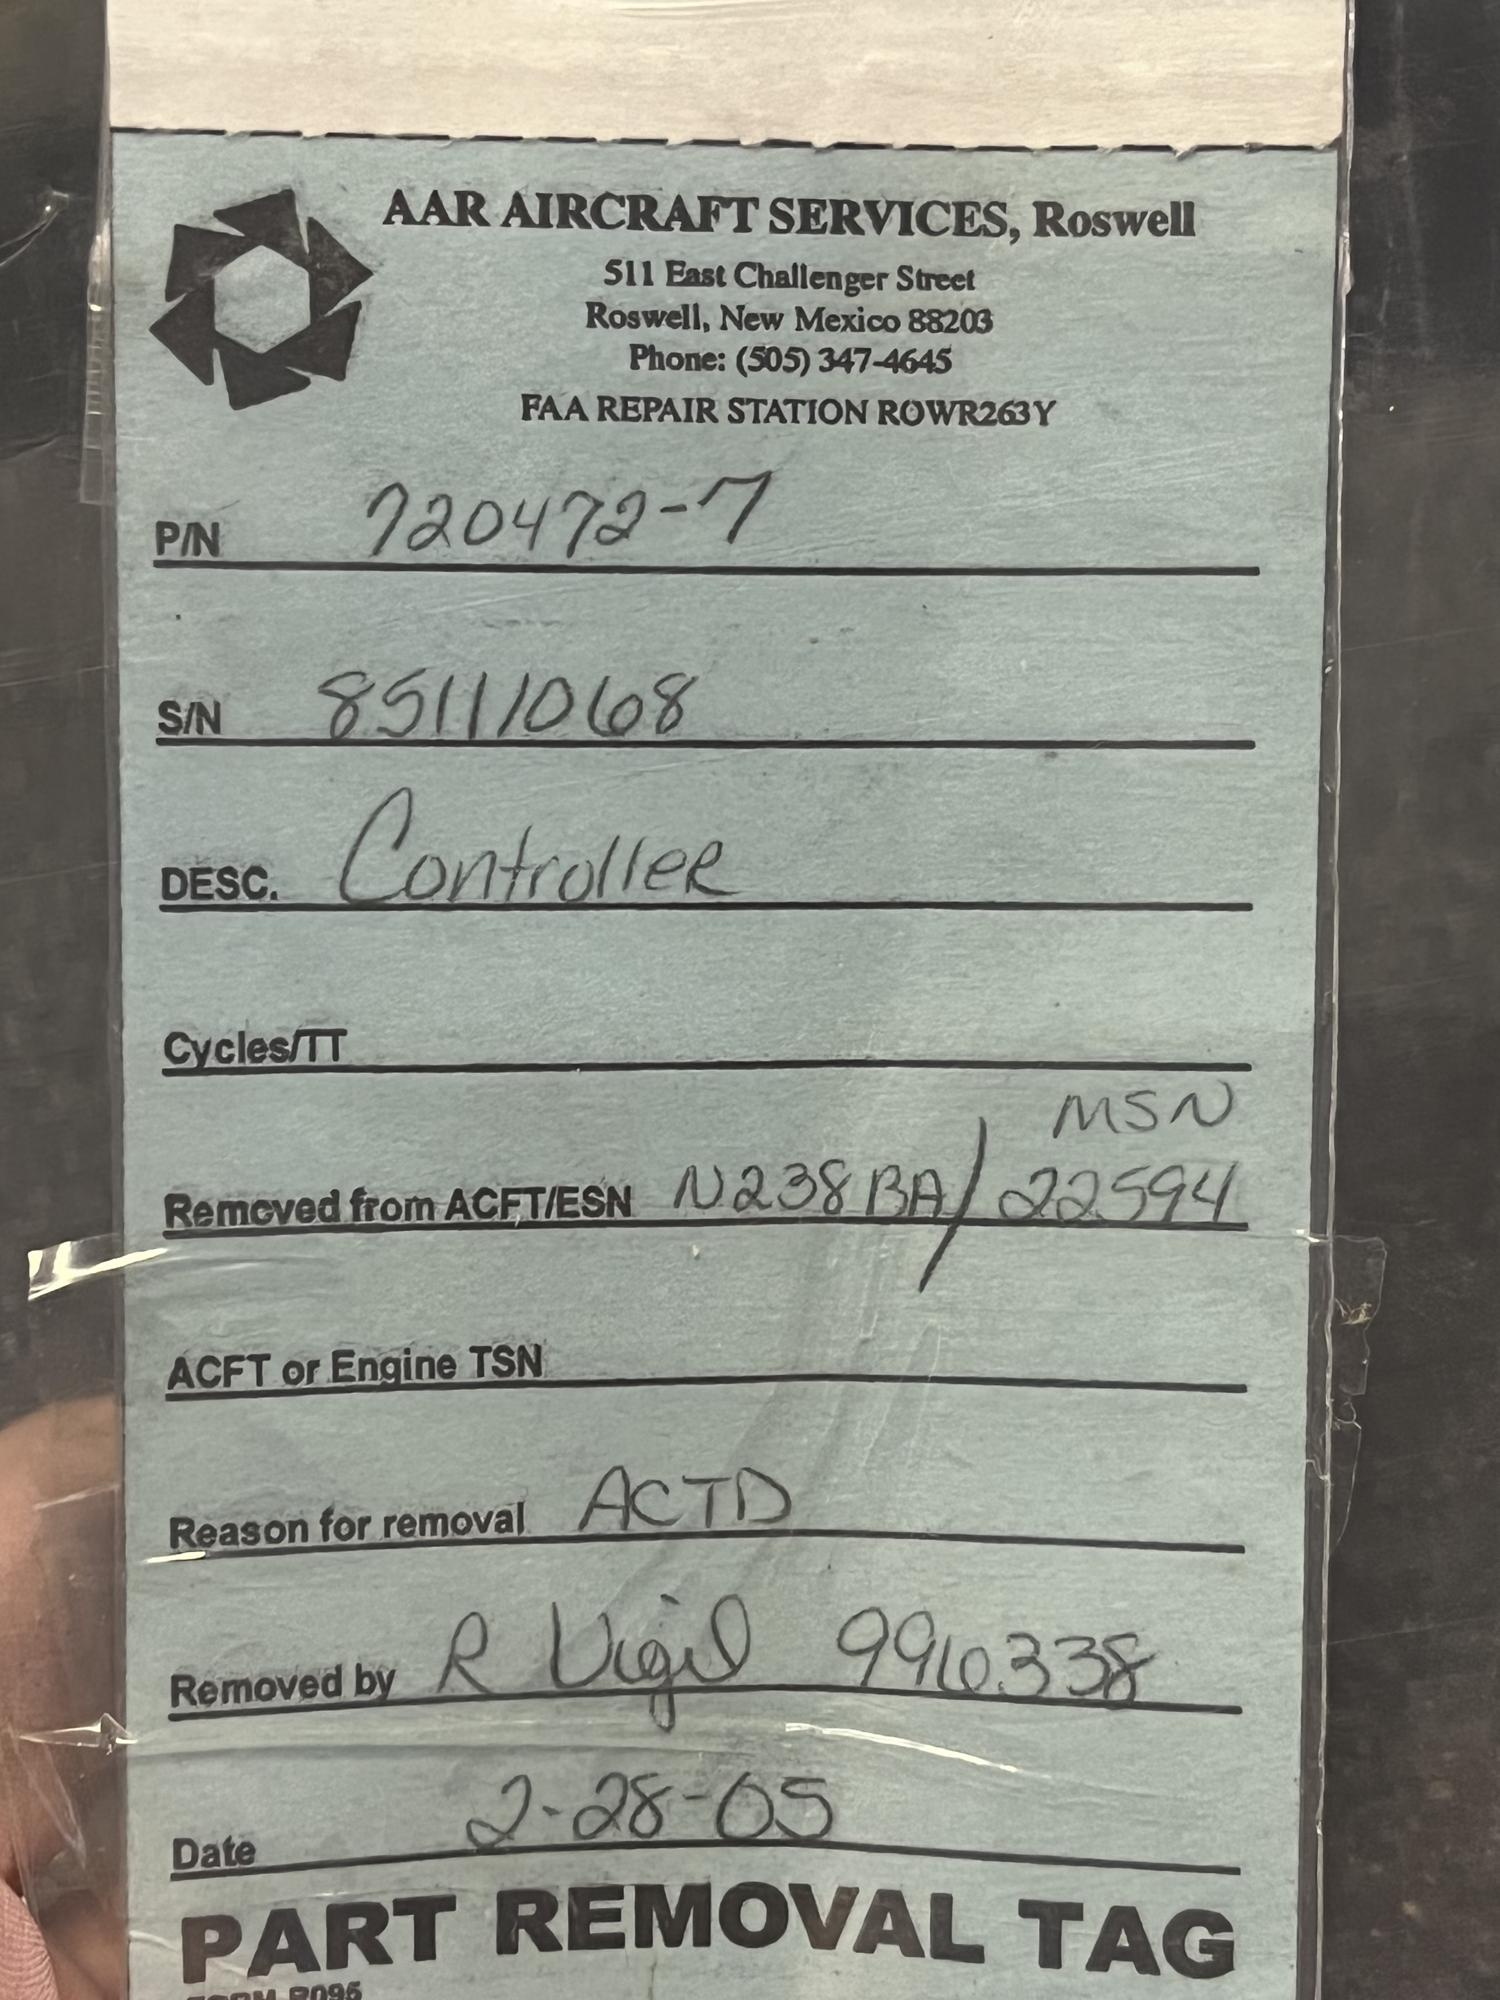 AAR AIRCRAFT SERVICES, Roswell
511 East Challenger Street
Roswell, New Mexico 88203
Phone: (505) 347-4645
FAA REPAIR STATION ROWR263Y
P/N 720472-7
S/N 85111068
DESC. Controller
Cycles/TT
MSN
Removed from ACFT/ESN N238BA/22594
ACFT or Engine TSN
Reason for removal ACTD
Removed by R Vigil 996338
Date 2-28-05
PART REMOVAL TAG
FORM R095